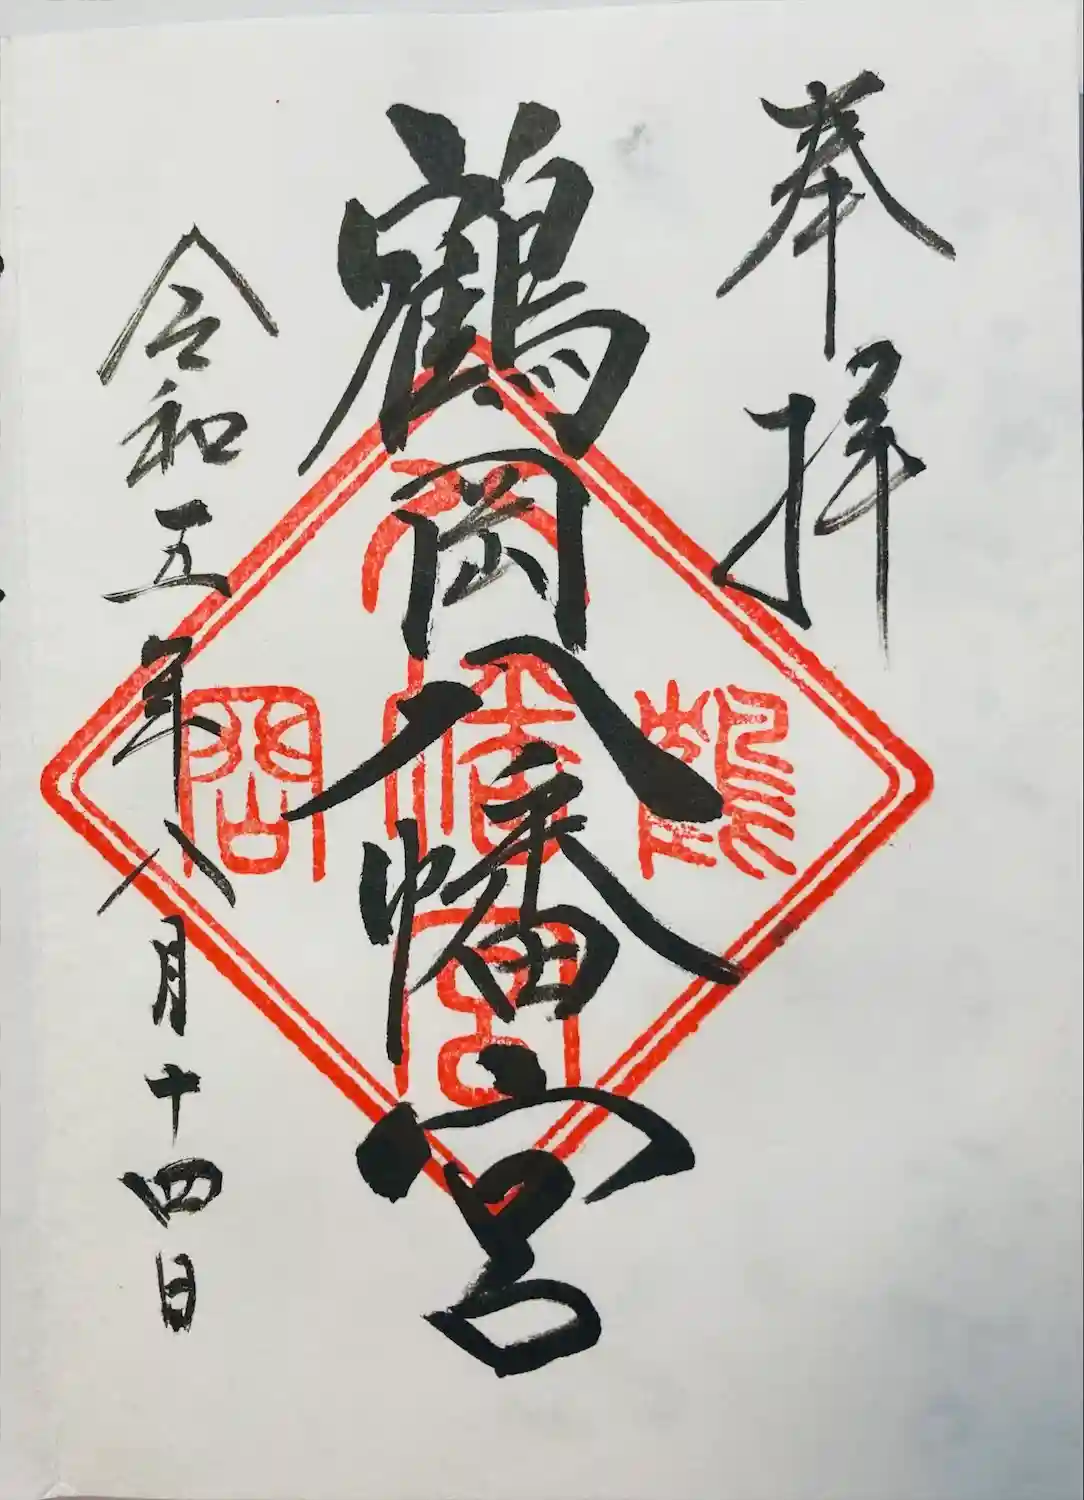 奉拝
鶴岡八幡宮
令和五年八月十四日
鶴
八幡
宮
岡